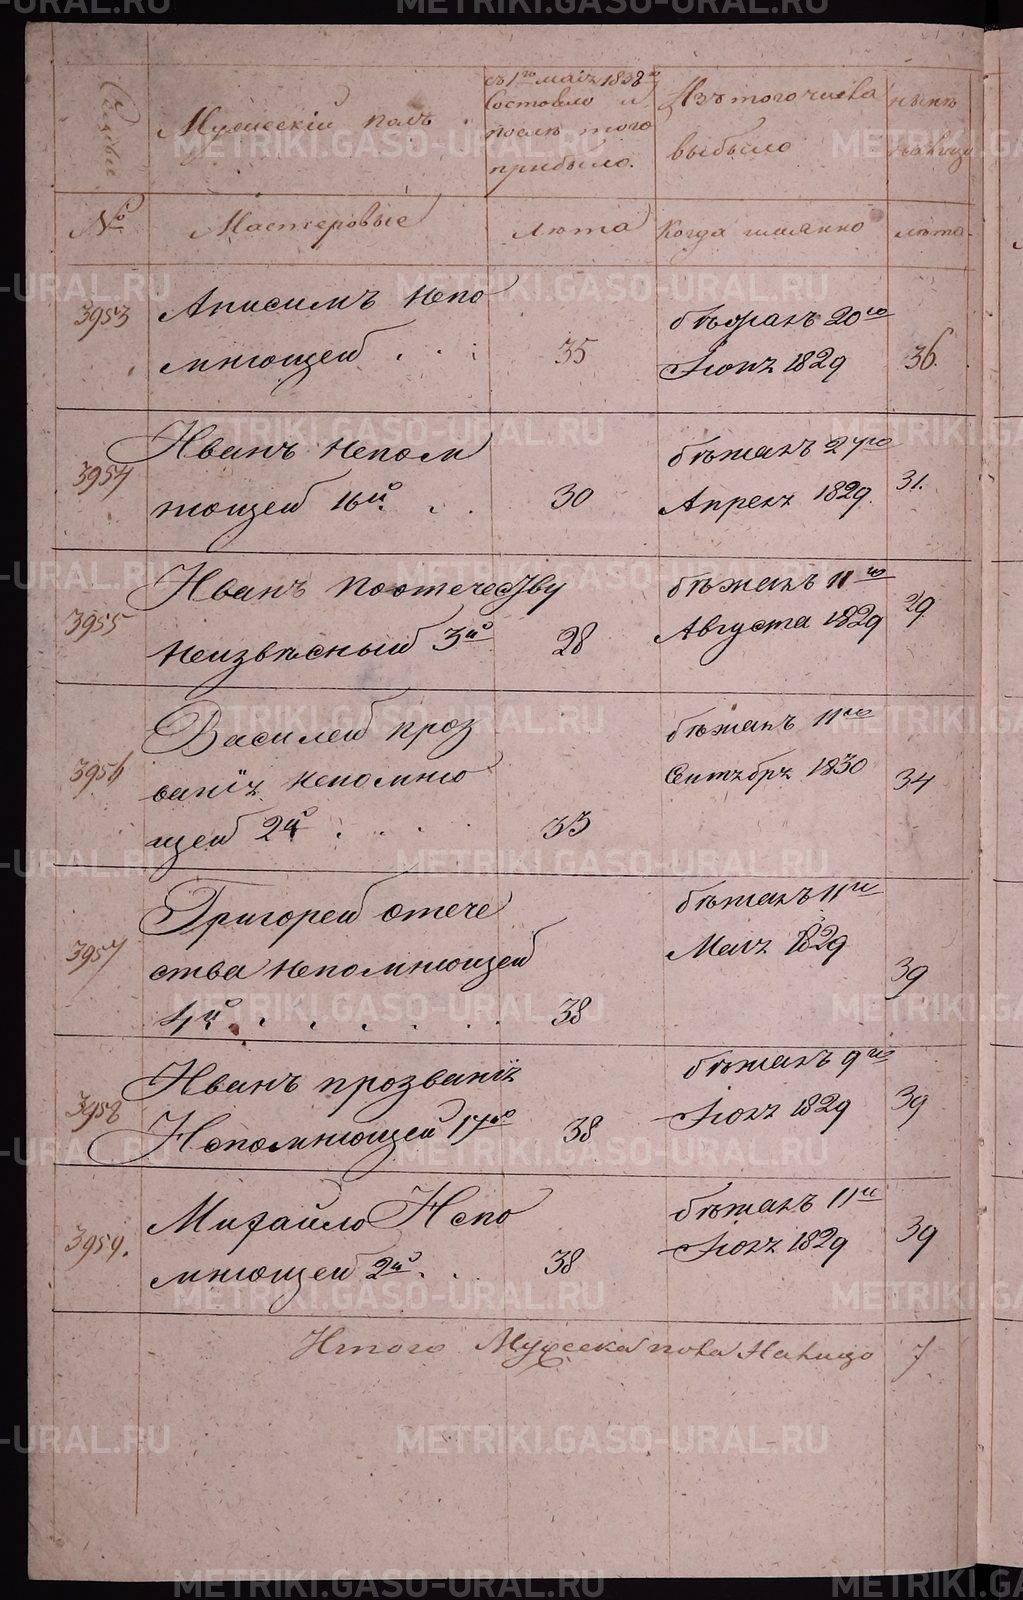 Мужескій полъ
съ 1го маiя 1828го
Состояло и
послѣ того
прибыло.
Изъ того числа
выбыло
нынѣ
на лицо
№ Мастеровые лѣта Когда имянно лѣта
3953 Анисимъ Непо
мнющей . . . 35
бѣжалъ 20го
Іюля 1829 36.
3954 Иванъ Непом
нющей 16й. . . 30
бѣжалъ 27го
Апреля 1829. 31.
3955 Иванъ поотечеству
Неизвѣсный 3й 28
бѣжалъ 11го
Августа 1829 29
3956 Василей проз
ванія непомню
щей 2й . . . . 33
бѣжалъ 11го
Сентебря 1830 34
3957 Григорей отече
ства непомнющей
4й . . . . . . . 38
бѣжалъ 11го
Маия 1829 39
3958 Иванъ прозванія
Непомнющей 17й 38
бѣжалъ 9го
Іюля 1829 39
3959. Михайло Непо
мнющей 2й. . . 38
бѣжалъ 11го
Іюля 1829 39
Итого Мужеска пола Налицо 7
METRIKI.GASO-URAL.RU